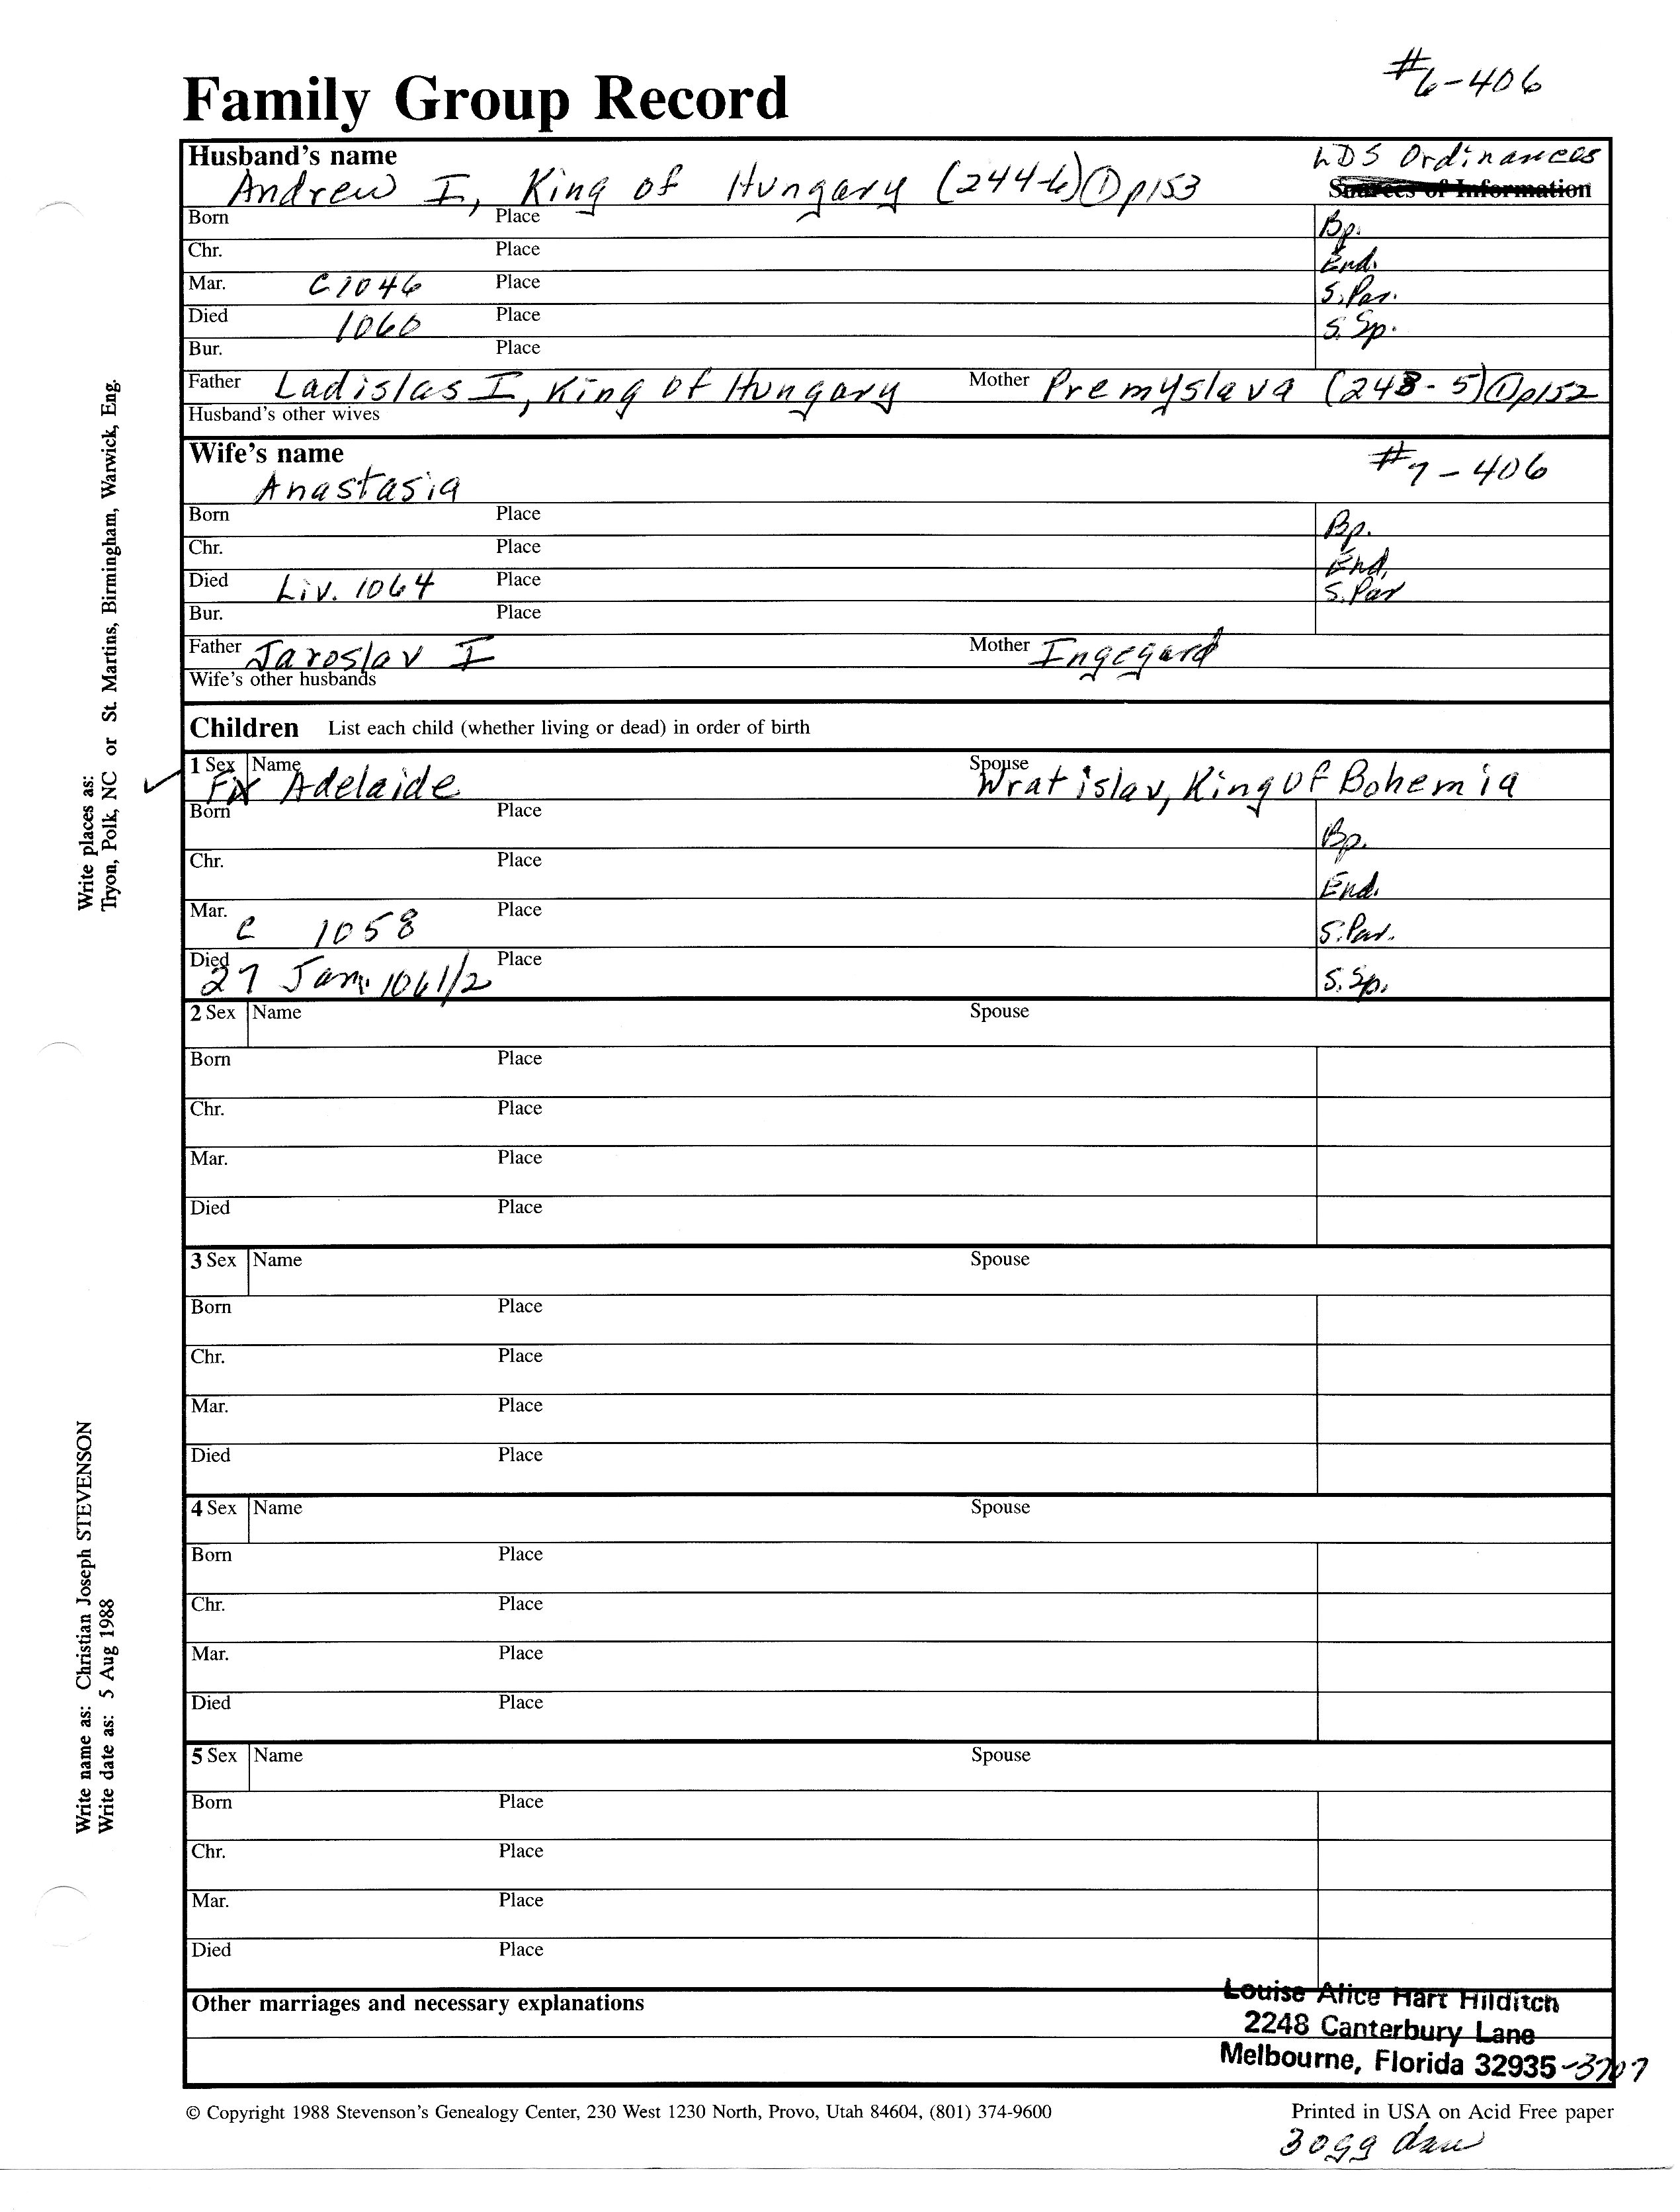 #6-406
Family Group Record
Husband's name
LDS Ordinances
Andrew I, King of Hungary (244-6) ① p153
Sources of Information
Born Place Bp.
Chr. Place End.
Mar. C 1046 Place S. Par.
Died 1060 Place S. Sp.
Bur. Place
Father Ladislas I, King of Hungary Mother Premyslava (243-5) ① p152
Husband's other wives
Wife's name #7-406
Anastasia
Born Place Bp.
Chr. Place End.
Died Liv. 1064 Place S. Par
Bur. Place
Father Jaroslav I Mother Ingegard
Wife's other husbands
Children List each child (whether living or dead) in order of birth
1 Sex Name Spouse
✓ FX Adelaide Wratislav, King of Bohemia
Born Place Bp.
Chr. Place End.
Mar. c 1058 Place S. Par.
Died 27 Jan. 1061/2 Place S. Sp.
2 Sex Name Spouse
Born Place
Chr. Place
Mar. Place
Died Place
3 Sex Name Spouse
Born Place
Chr. Place
Mar. Place
Died Place
4 Sex Name Spouse
Born Place
Chr. Place
Mar. Place
Died Place
5 Sex Name Spouse
Born Place
Chr. Place
Mar. Place
Died Place
Other marriages and necessary explanations
Louise Alice Hart Hilditch
2248 Canterbury Lane
Melbourne, Florida 32935-3707
© Copyright 1988 Stevenson's Genealogy Center, 230 West 1230 North, Provo, Utah 84604, (801) 374-9600 Printed in USA on Acid Free paper
30gg dau
Write places as:
Tryon, Polk, NC or St. Martins, Birmingham, Warwick, Eng.
Write name as: Christian Joseph STEVENSON
Write date as: 5 Aug 1988